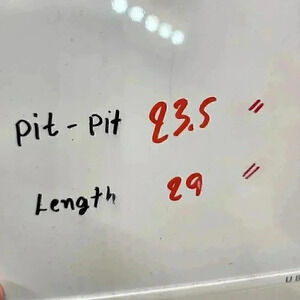 pit - pit 23.5 "
Length 29 "